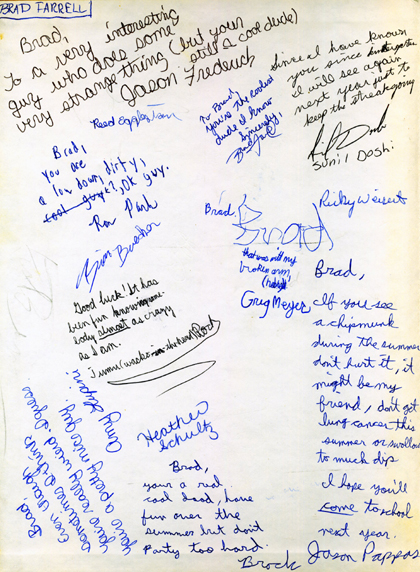 BRAD FARRELL
Brad,
To a very interesting
guy who does some
very strange thing (but your
still a cool dude)
Jason Frederick
Since I have known
you since kindergarten
I will see again
next year just to
keep the streak going
Sunil Doshi
Reed Eggleston
To Brad,
You're the coolest
dude I know
Sincerely,
Brad,
you are
a low down, dirty,
OK guy.
Ron Park
Jim
Brad,
Brad
that was with my
broken arm,
(haha)
Greg Meyer
Ricky Weisert
Good luck! It has
been fun knowing some-
body almost as crazy
as I am.
Brad,
If you see
a chipmunk
during the summer
don't hurt it, it
might be my
friend, don't get
lung cancer this
summer or swollow
to much dip
I hope you'll
come to school
next year.
Jason Pappas
Brad!
Even though
sometimes
You're really weird I guess
you're a pretty nice guy!
Amy
Heather
Schultz
Brad,
your a real
cool dood, have
fun over the
summer but don't
Party too hard.
Brock